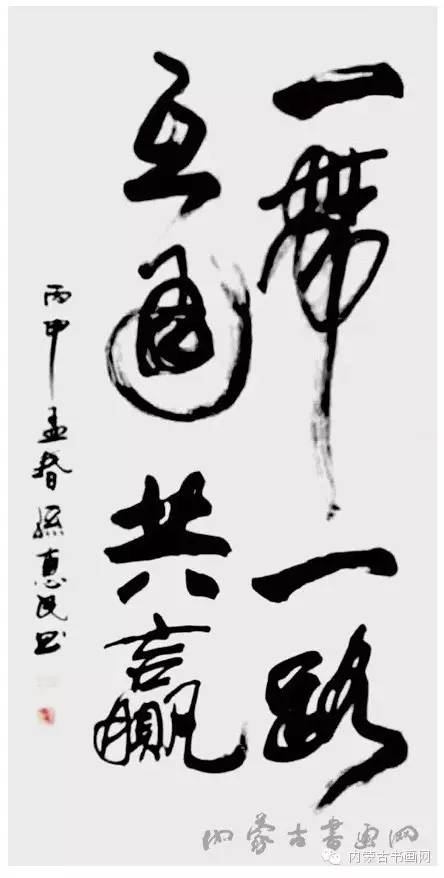 一带一路
互通共赢
丙申孟春孫惠民书
内蒙古书画网
内蒙古书画网